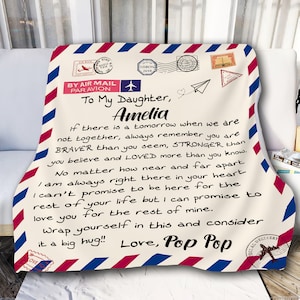 BY AIR MAIL
PAR AVION
To My Daughter,
Amelia
If there is a tomorrow when we are
not together, always remember you are
BRAVER than you seem, STRONGER than
you believe and LOVED more than you know
No matter how near and far apart
I am always right there in your heart
I can't promise to be here for the
rest of your life but I can promise to
love you for the rest of mine.
Wrap yourself in this and consider
it a big hug!!
Love, Pop Pop